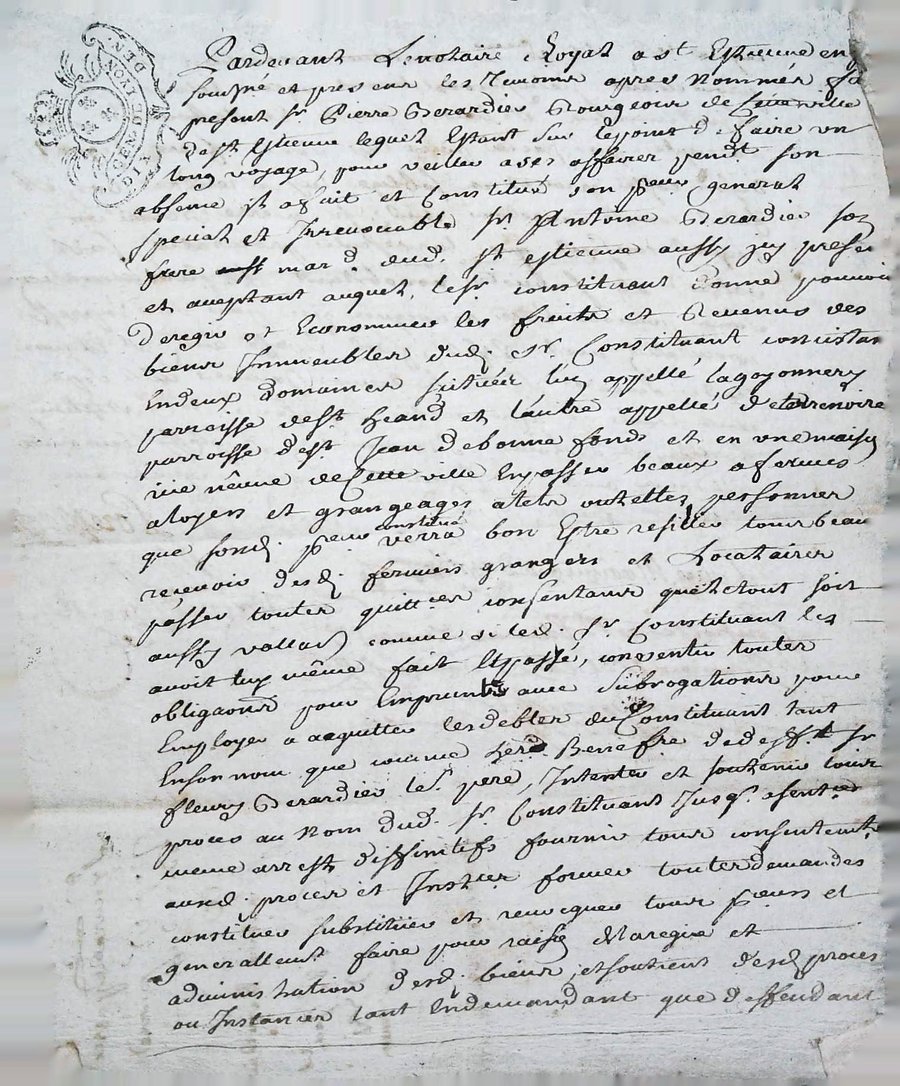 GEN DE LYON DEN
Pardevant Le notaire Royal a st Estienne en
soussné et presens les Temoins apres Nommés fu
present sr Pierre Gerardier Bourgeois de Cette ville
de st Estienne lequel Estant sur le point de faire un
long voyage, pour veiller a ses affaires pendt son
absence il a fait et Constitué son preur general
special et Irrevocable sr Antoine Gerardier son
frere mard dud. st estienne aussy icy presen
et aceptant auquel, le sr constituant donne pouvoir
de regir et Economiser les fruits et Revenus des
biens Immeubles dud. sr Constituant consistan
En deux domaines situés l'un appellé lagoyonnery
parroisse de st heand et l'autre appellé de
parroisse de st Jean de bonne fonds et en une maison
de Cette ville En passer beaux a fermes
aloyers et grangeages a telles personnes
que fond. preur constitué verra bon Estre resilier tous beau
recevoir desd. fermiers grangers et Locataires
passer toutes quittces consentant que le tout soit
aussy vallad comme si led. sr Constituant les
avoit luy même fait Et passé, consentir toutes
obligaons pour Emprunts avec subrogations pour
Employer a acquitter les debtes du Constituant tant
En son nom que comme here Beneffre de defft sr
fleury Gerardier le pere, Intenter et soutenir tous
proces au Nom dud. sr Constituant Jusq. a
meme arrest diffinitifs fournir tous consentemts
auxd. proces et Instces former toutes demandes
constituer substituer et revocquer tous preurs et
generallemt faire pour raison de la regie et
administration desd. biens, et soutient desd. proces
ou Instances tant En demandant que deffendant